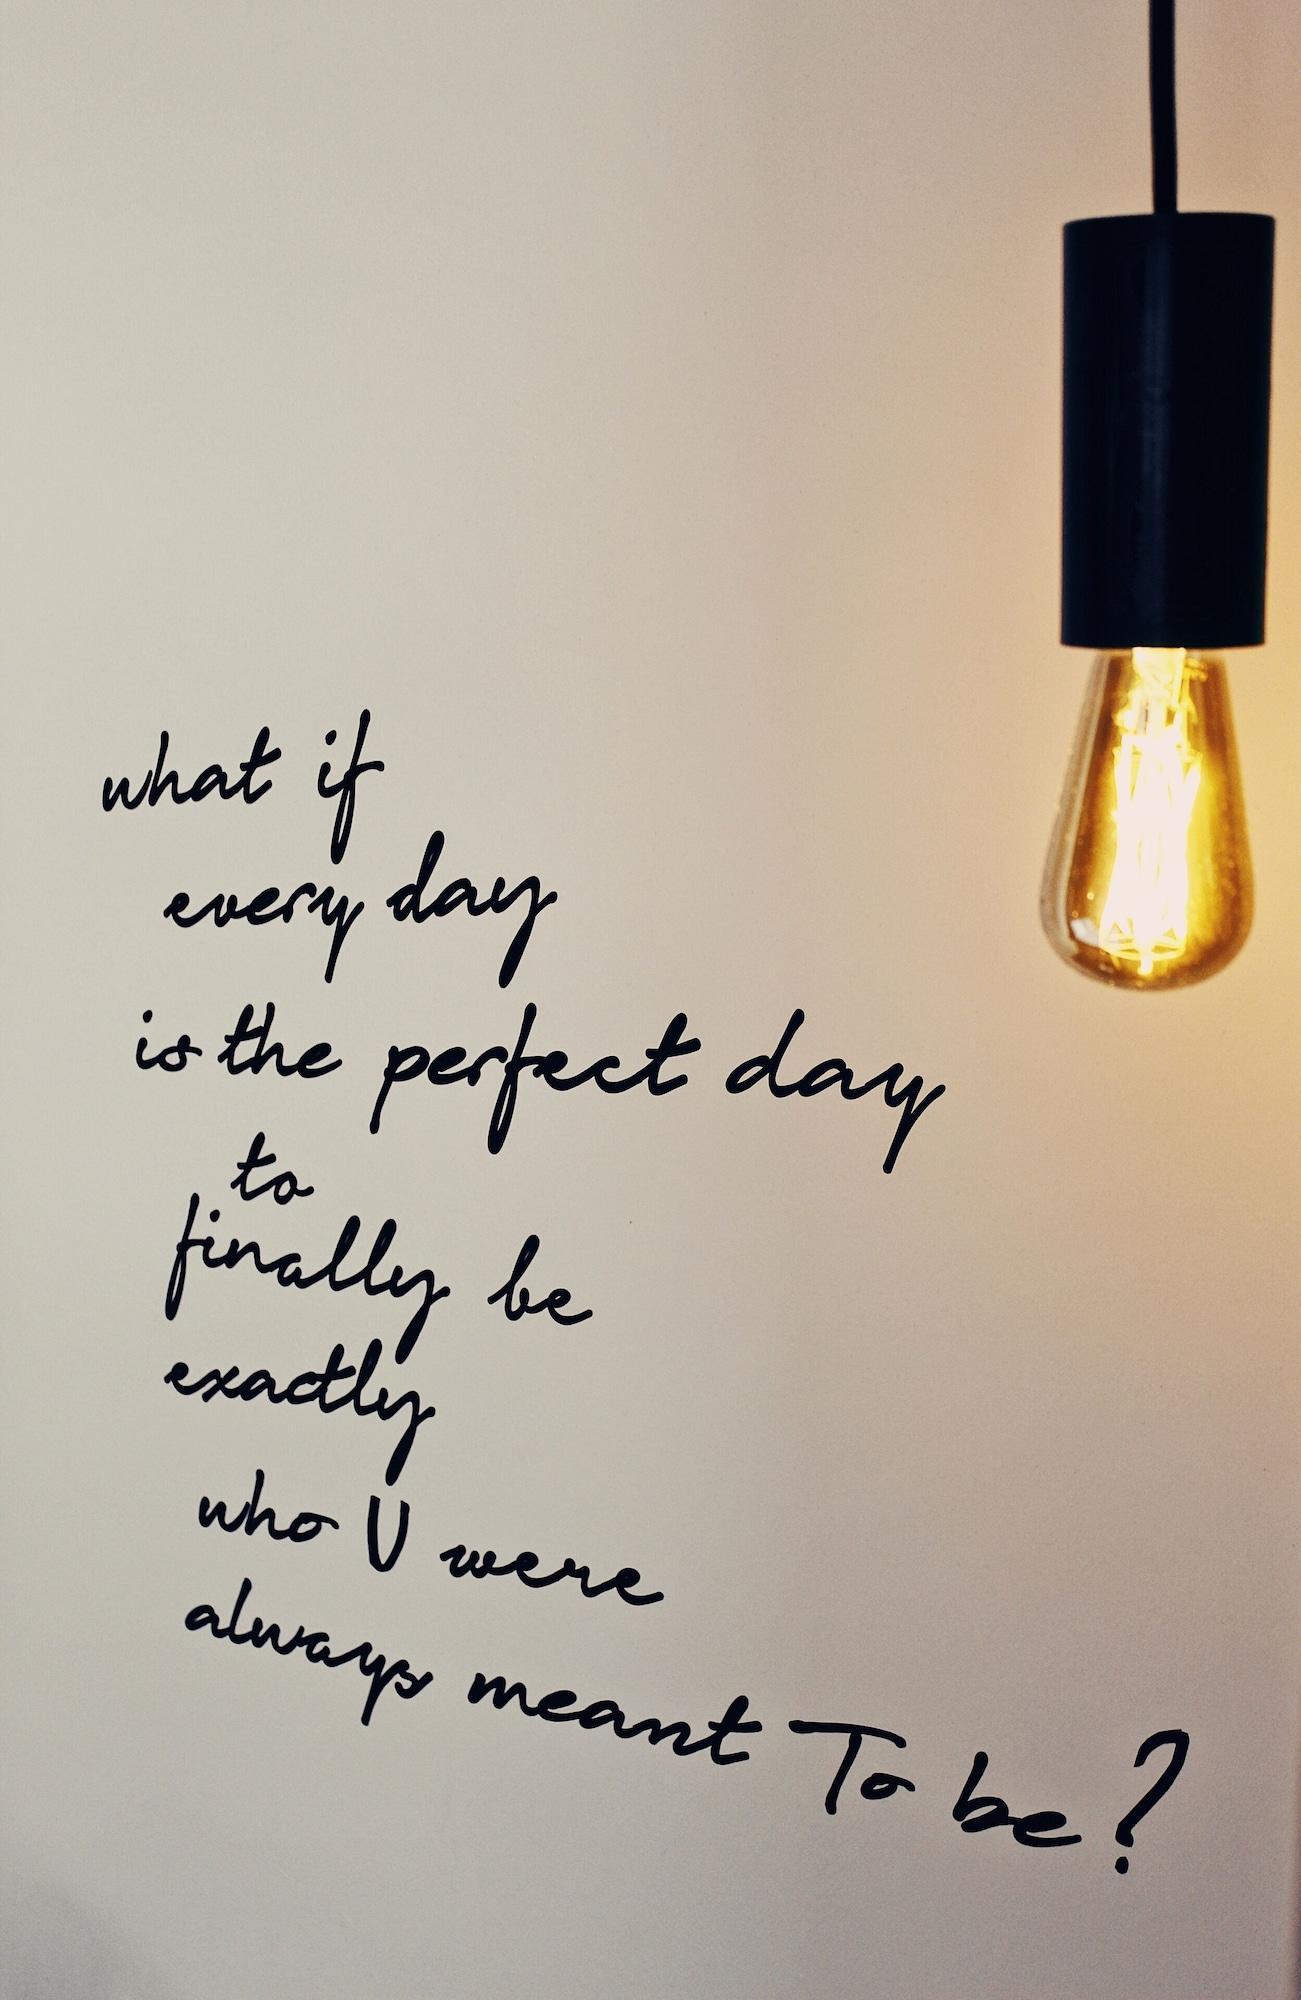 what if
every day
is the perfect day
to
finally be
exactly
who U were
always meant To be?